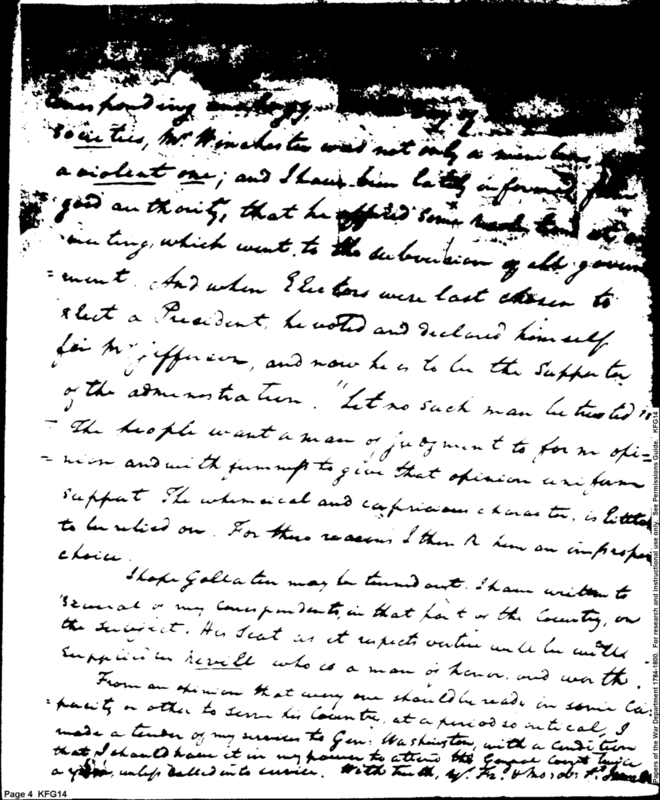 corresponding of
Societies, Mr Winchester was not only a member,
a violent one; and I have been lately informed from
good authority, that he offered some at a
meeting, which went to the subversion of all govern
=ment. And when Electors were last chosen to
elect a President, he voted and declared himself
for Mr Jefferson, and now he is to be the Supporter
of the administration. "Let no such man be trusted"
The people want a man of judgment to form opi=
=nion and with firmness to give that opinion uniform
support. The whimsical and capricious character, is little
to be relied on. For these reasons I think him an improper
choice.
I hope Gallatin may be turned out. I have written to
several of my correspondents, in that part of the Country, on
the subject. His Seat as it respects virtue will be well
supplied in Nevill who is a man of honor and worth.
From an opinion that every one should be ready in some ca
=pacity or other to serve his Country, at a period so critical, I
made a tender of my services to Gen. Washington, with a condition
that I should have it in my power to attend the General Courts twice
a year, unless called into service. With truth, yr. Fr. &
Page 4 KFG14
Papers of the War Department 1784-1800. For research and instructional use only. See Permissions Guide. KFG14